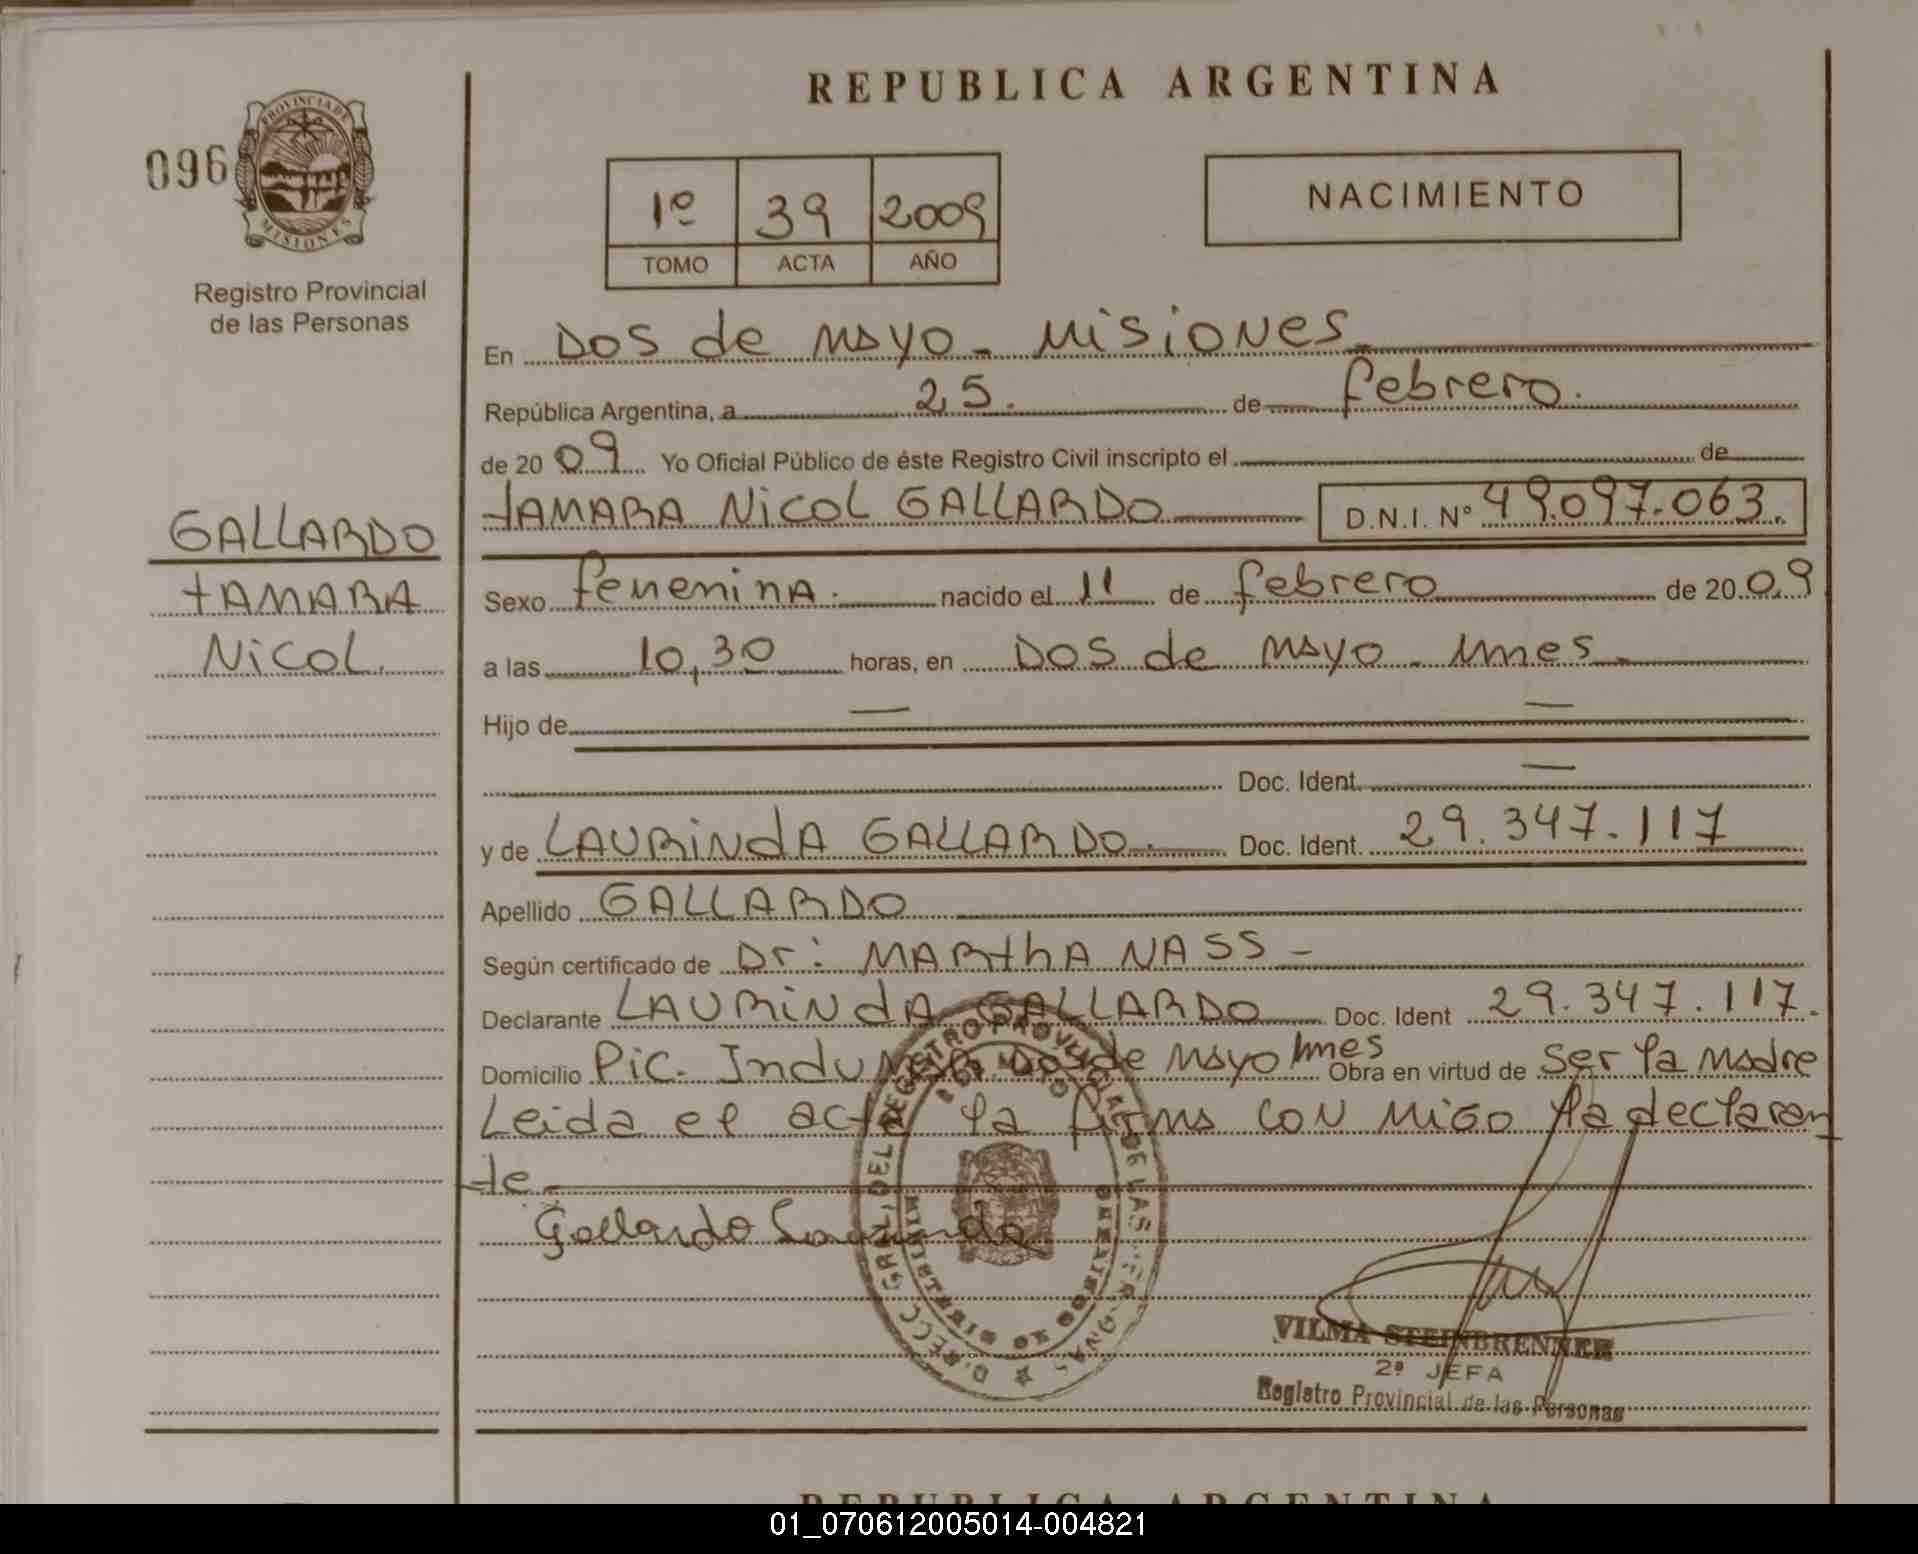 REPUBLICA ARGENTINA
096
PROVINCIA DE
MISIONES
Registro Provincial
de las Personas
1º 39 2009
TOMO ACTA AÑO
NACIMIENTO
En DOS de mayo - MISIONES
República Argentina, a 25. de febrero.
de 20 09 Yo Oficial Público de éste Registro Civil inscripto el de
GALLARDO
TAMARA
NICOL.
TAMARA NICOL GALLARDO D.N.I. Nº 49.097.063.
Sexo femenina. nacido el 11 de febrero de 20 09
a las 10,30 horas, en DOS de mayo - Mnes -
Hijo de — —
Doc. Ident. —
y de LAURINDA GALLARDO. Doc. Ident. 29.347.117
Apellido GALLARDO
Según certificado de Dr: MARTHA NASS -
Declarante LAURINDA GALLARDO Doc. Ident 29.347.117.
Domicilio Pic. Dos de mayo Mnes Obra en virtud de ser la madre
Leida el acta la firma con migo la declaran
te -
Gallardo Laurinda
VILMA STEINBRENNER
2ª JEFA
Registro Provincial de las Personas
REPUBLICA ARGENTINA
01_070612005014-004821